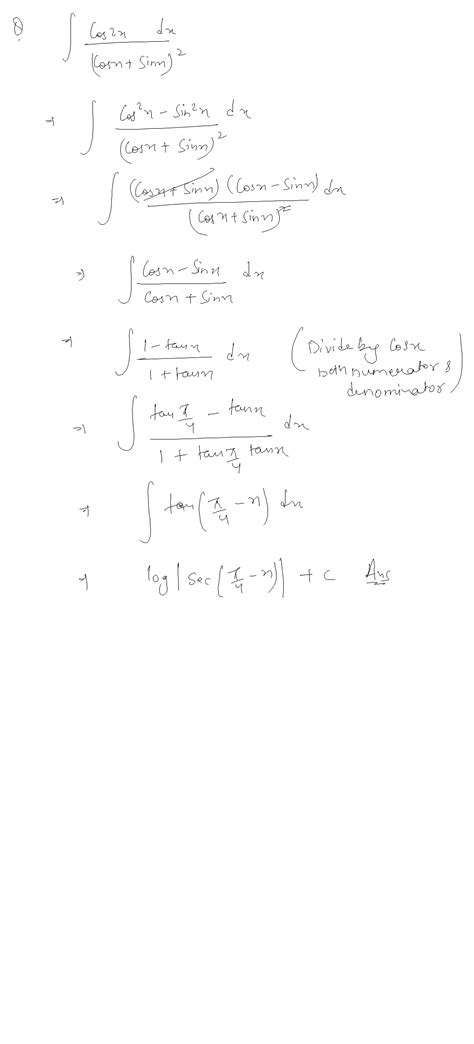 Q ∫ Cos2x dx / (Cosx + Sinx)²
⇒ ∫ Cos²x − Sin²x dx / (Cosx + Sinx)²
⇒ ∫ (Cosx + Sinx) (Cosx − Sinx) dx / (Cosx + Sinx)²
⇒ ∫ Cosx − Sinx dx / Cosx + Sinx
⇒ ∫ 1 − tanx / 1 + tanx dx (Divide by Cosx
both numerator &
denominator)
⇒ ∫ tan π/4 − tanx / 1 + tan π/4 tanx dx
⇒ ∫ tan(π/4 − x) dx
⇒ log|Sec(π/4 − x)| + C Ans